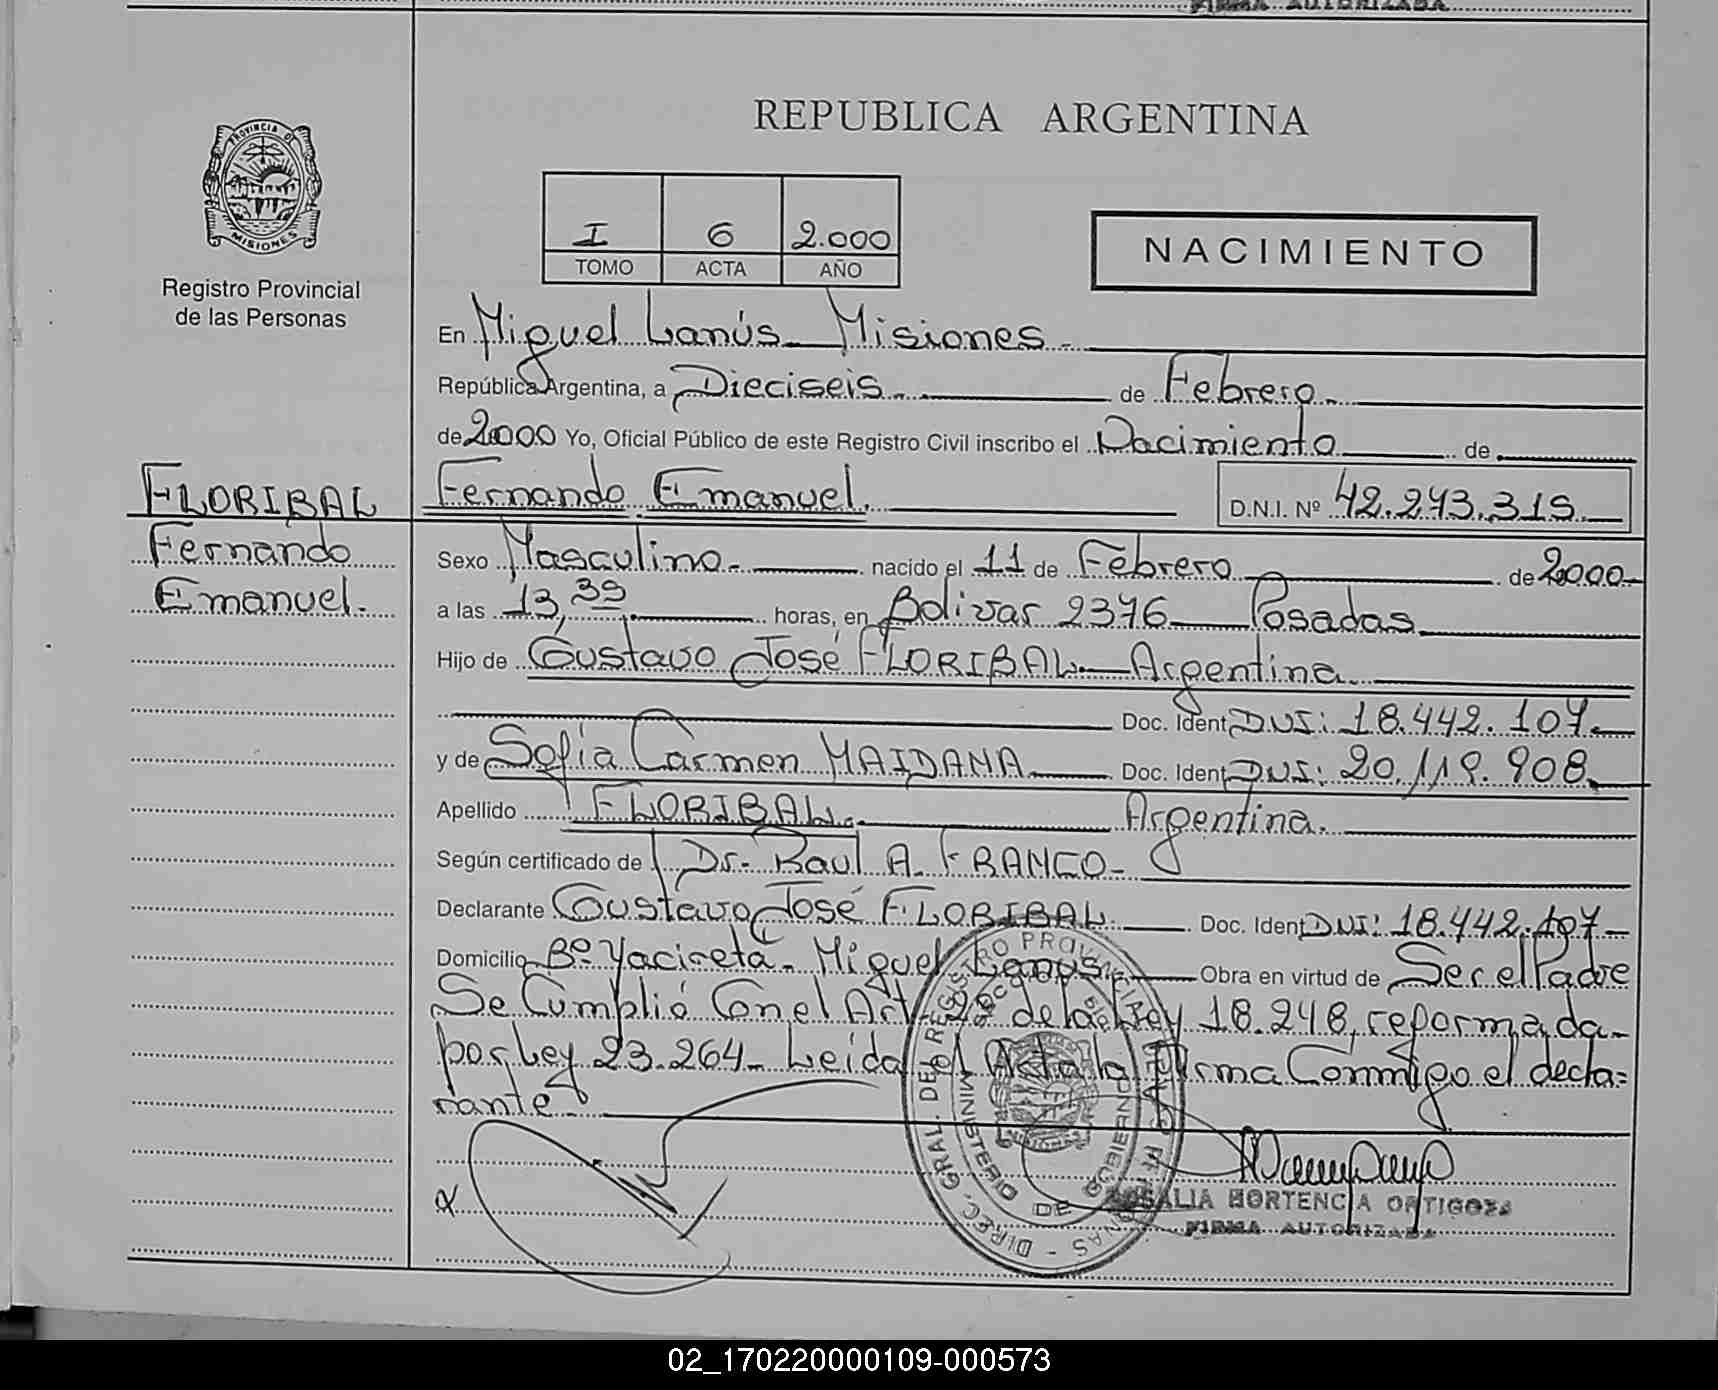 FIRMA AUTORIZADA
REPUBLICA ARGENTINA
PROVINCIA DE
MISIONES
I 6 2.000
TOMO ACTA AÑO
NACIMIENTO
Registro Provincial
de las Personas
En Miguel Lanús - Misiones -
República Argentina, a Dieciseis de Febrero.
de 2.000 Yo, Oficial Público de este Registro Civil inscribo el Nacimiento de
FLORIBAL Fernando Emanuel. D.N.I. Nº 42.273.319
Fernando
Emanuel.
Sexo Masculino - nacido el 11 de Febrero de 2000
a las 13,39 horas, en Bolivar 2376 Posadas
Hijo de Gustavo José FLORIBAL - Argentina.
Doc. Ident DNI: 18.442.107
y de Sofia Carmen MAIDANA Doc. Ident DNI: 20.119.908
Apellido FLORIBAL. Argentina.
Según certificado de Dr. Raul A. FRANCO-
Declarante Gustavo José FLORIBAL Doc. Ident DNI: 18.442.107
Domicilio Bº Yacireta - Miguel Lanus. Obra en virtud de Ser el Padre
Se Cumplió Con el Art. 2º de la Ley 18.248, reformada
por Ley 23.264 - Leida el Acta la firma Conmigo el decla=
rante
DIREC. GRAL. DEL REGISTRO PROVINCIAL DE LAS PERSONAS
MINISTERIO DE GOBIERNO
ROSALIA HORTENCIA ORTIGOZA
FIRMA AUTORIZADA
02_170220000109-000573